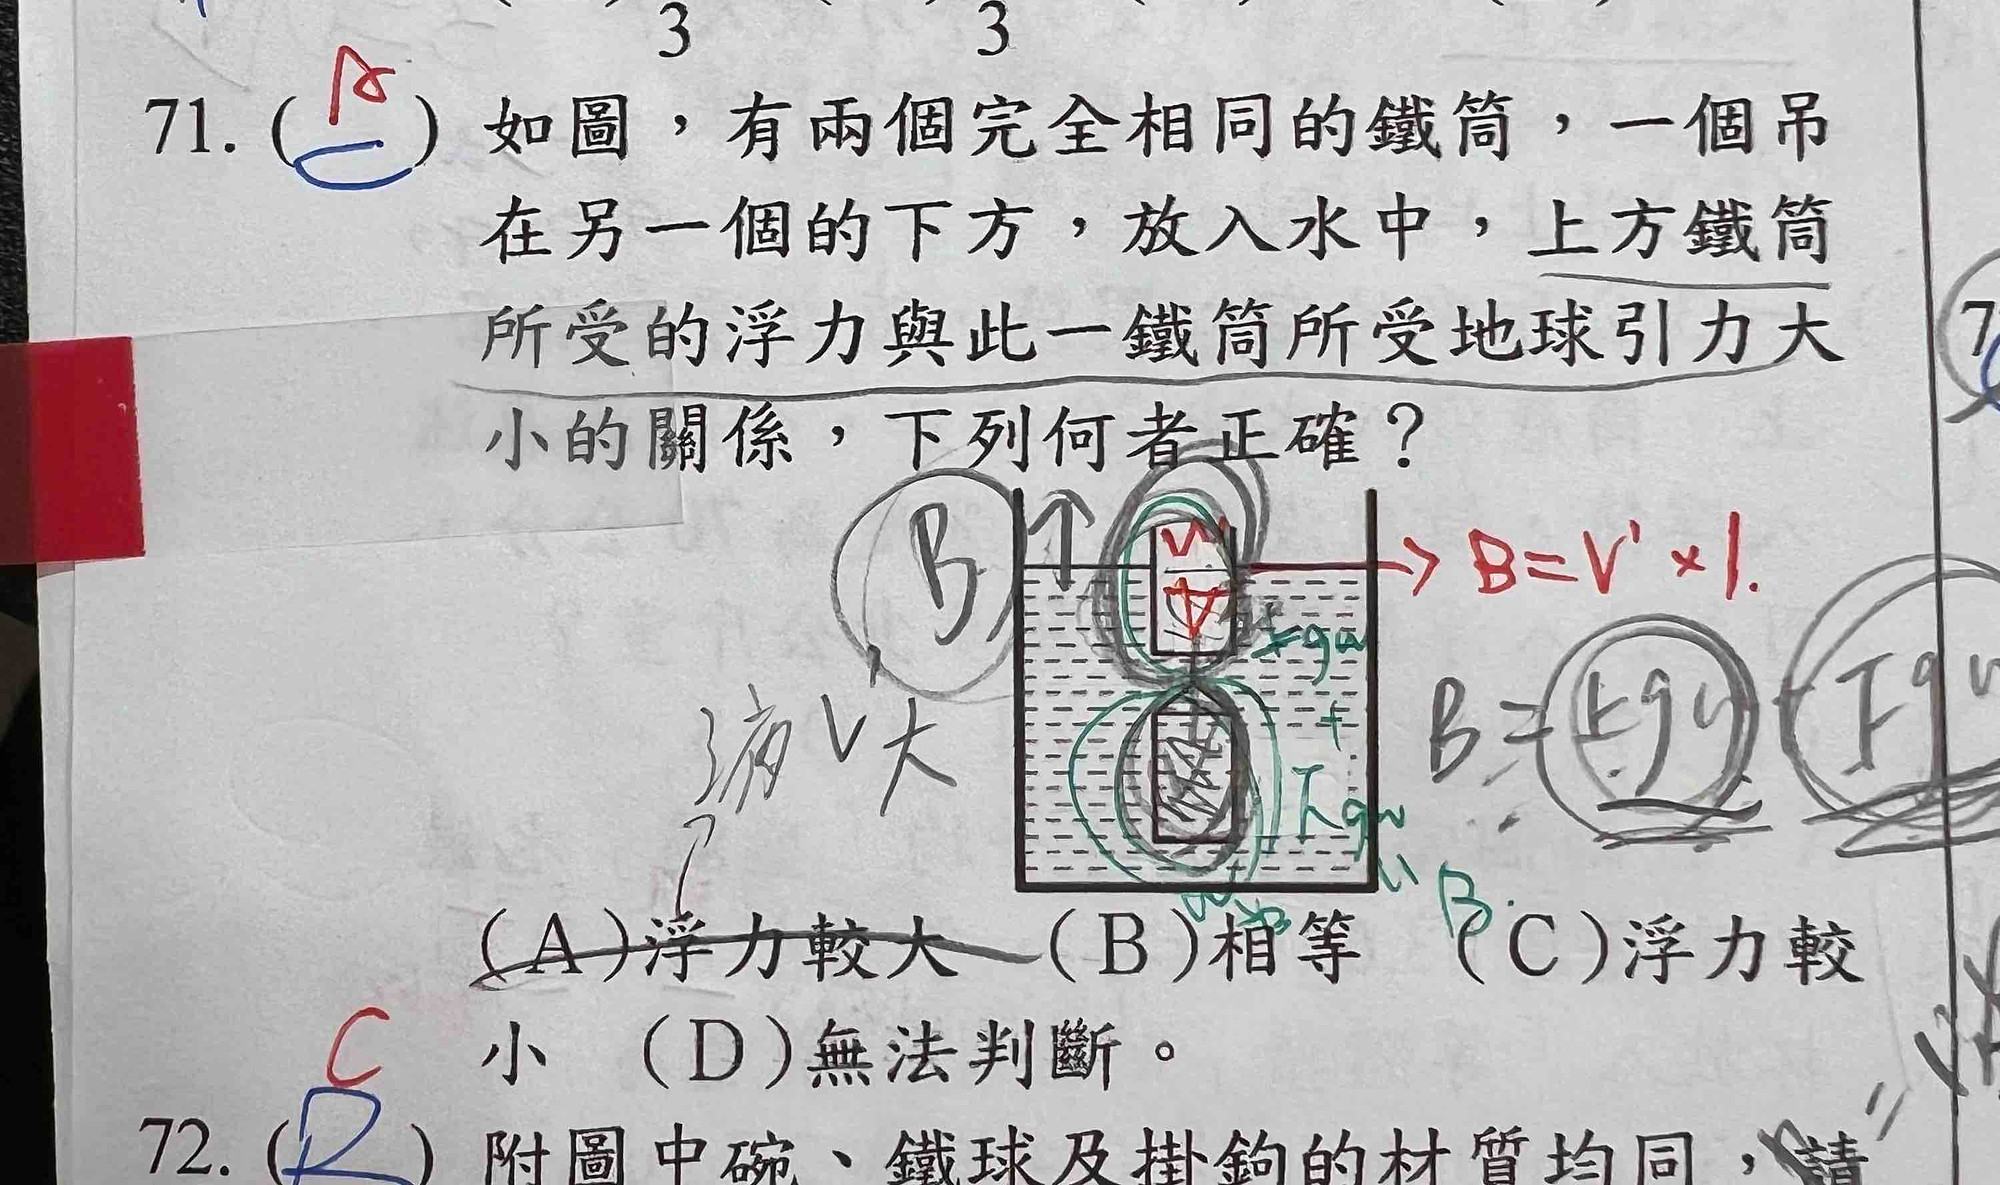 3 3
71. ( A ) 如圖，有兩個完全相同的鐵筒，一個吊
在另一個的下方，放入水中，上方鐵筒
所受的浮力與此一鐵筒所受地球引力大
小的關係，下列何者正確？
B
B=V'×1.
上gw
+
下gw
B
B = 上gw + 下gw
液V大
(A)浮力較大 (B)相等 (C)浮力較
小 (D)無法判斷。
C
72. ( ) 附圖中碗、鐵球及掛鉤的材質均同，請